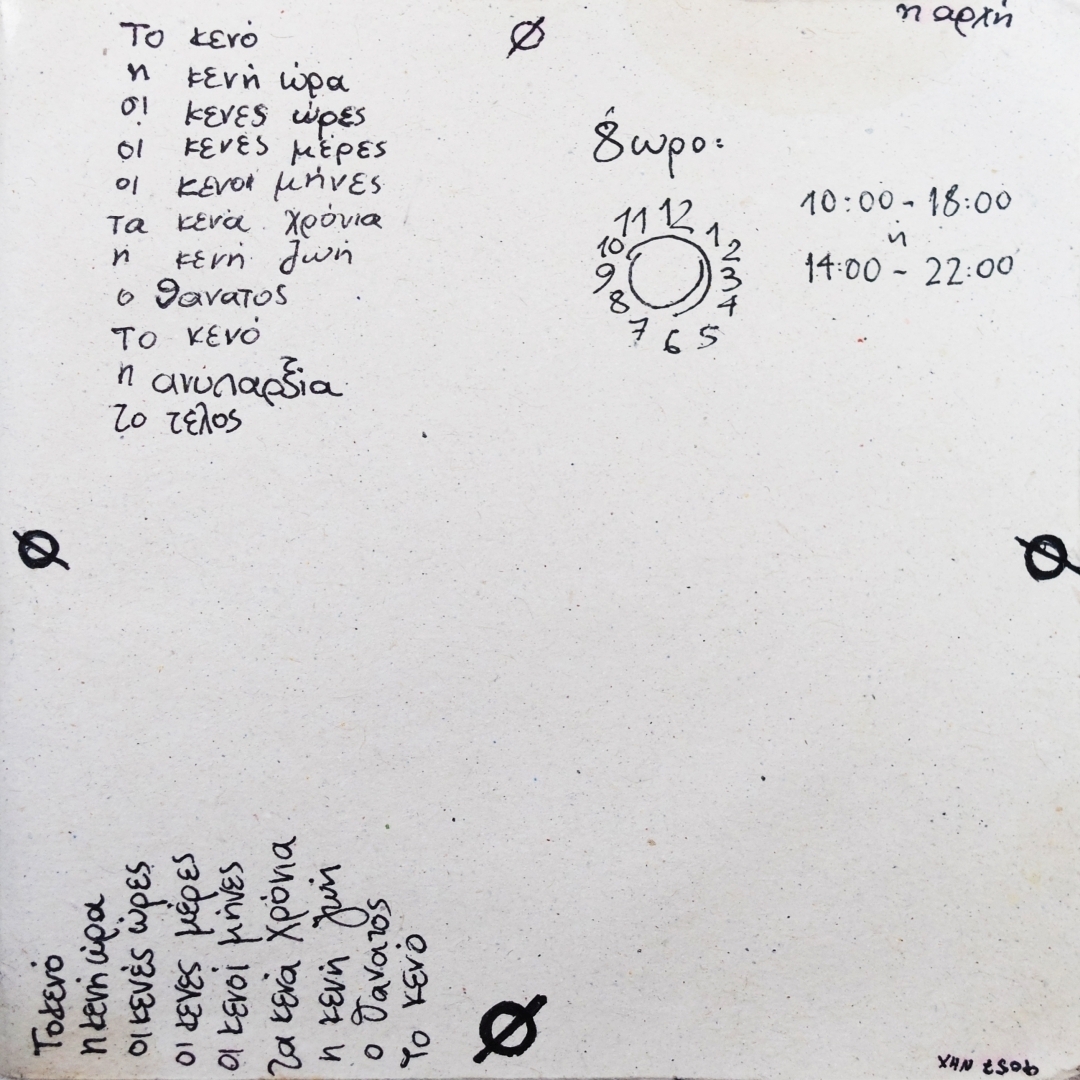 η αρχή
Το κενό
η κενή ώρα
οι κενές ώρες
οι κενές μέρες
οι κενοί μήνες
τα κενά χρόνια
η κενή ζωή
ο θάνατος
Το κενό
η ανυπαρξία
το τέλος
Ø
8ωρο:
11 12 1
10 2
9 3
8 4
7 6 5
10:00 - 18:00
ή
14:00 - 22:00
Ø
Ø
Το κενό
η κενή ώρα
οι κενές ώρες
οι κενές μέρες
οι κενοί μήνες
τα κενά χρόνια
η κενή ζωή
ο θάνατος
Το κενό
Ø